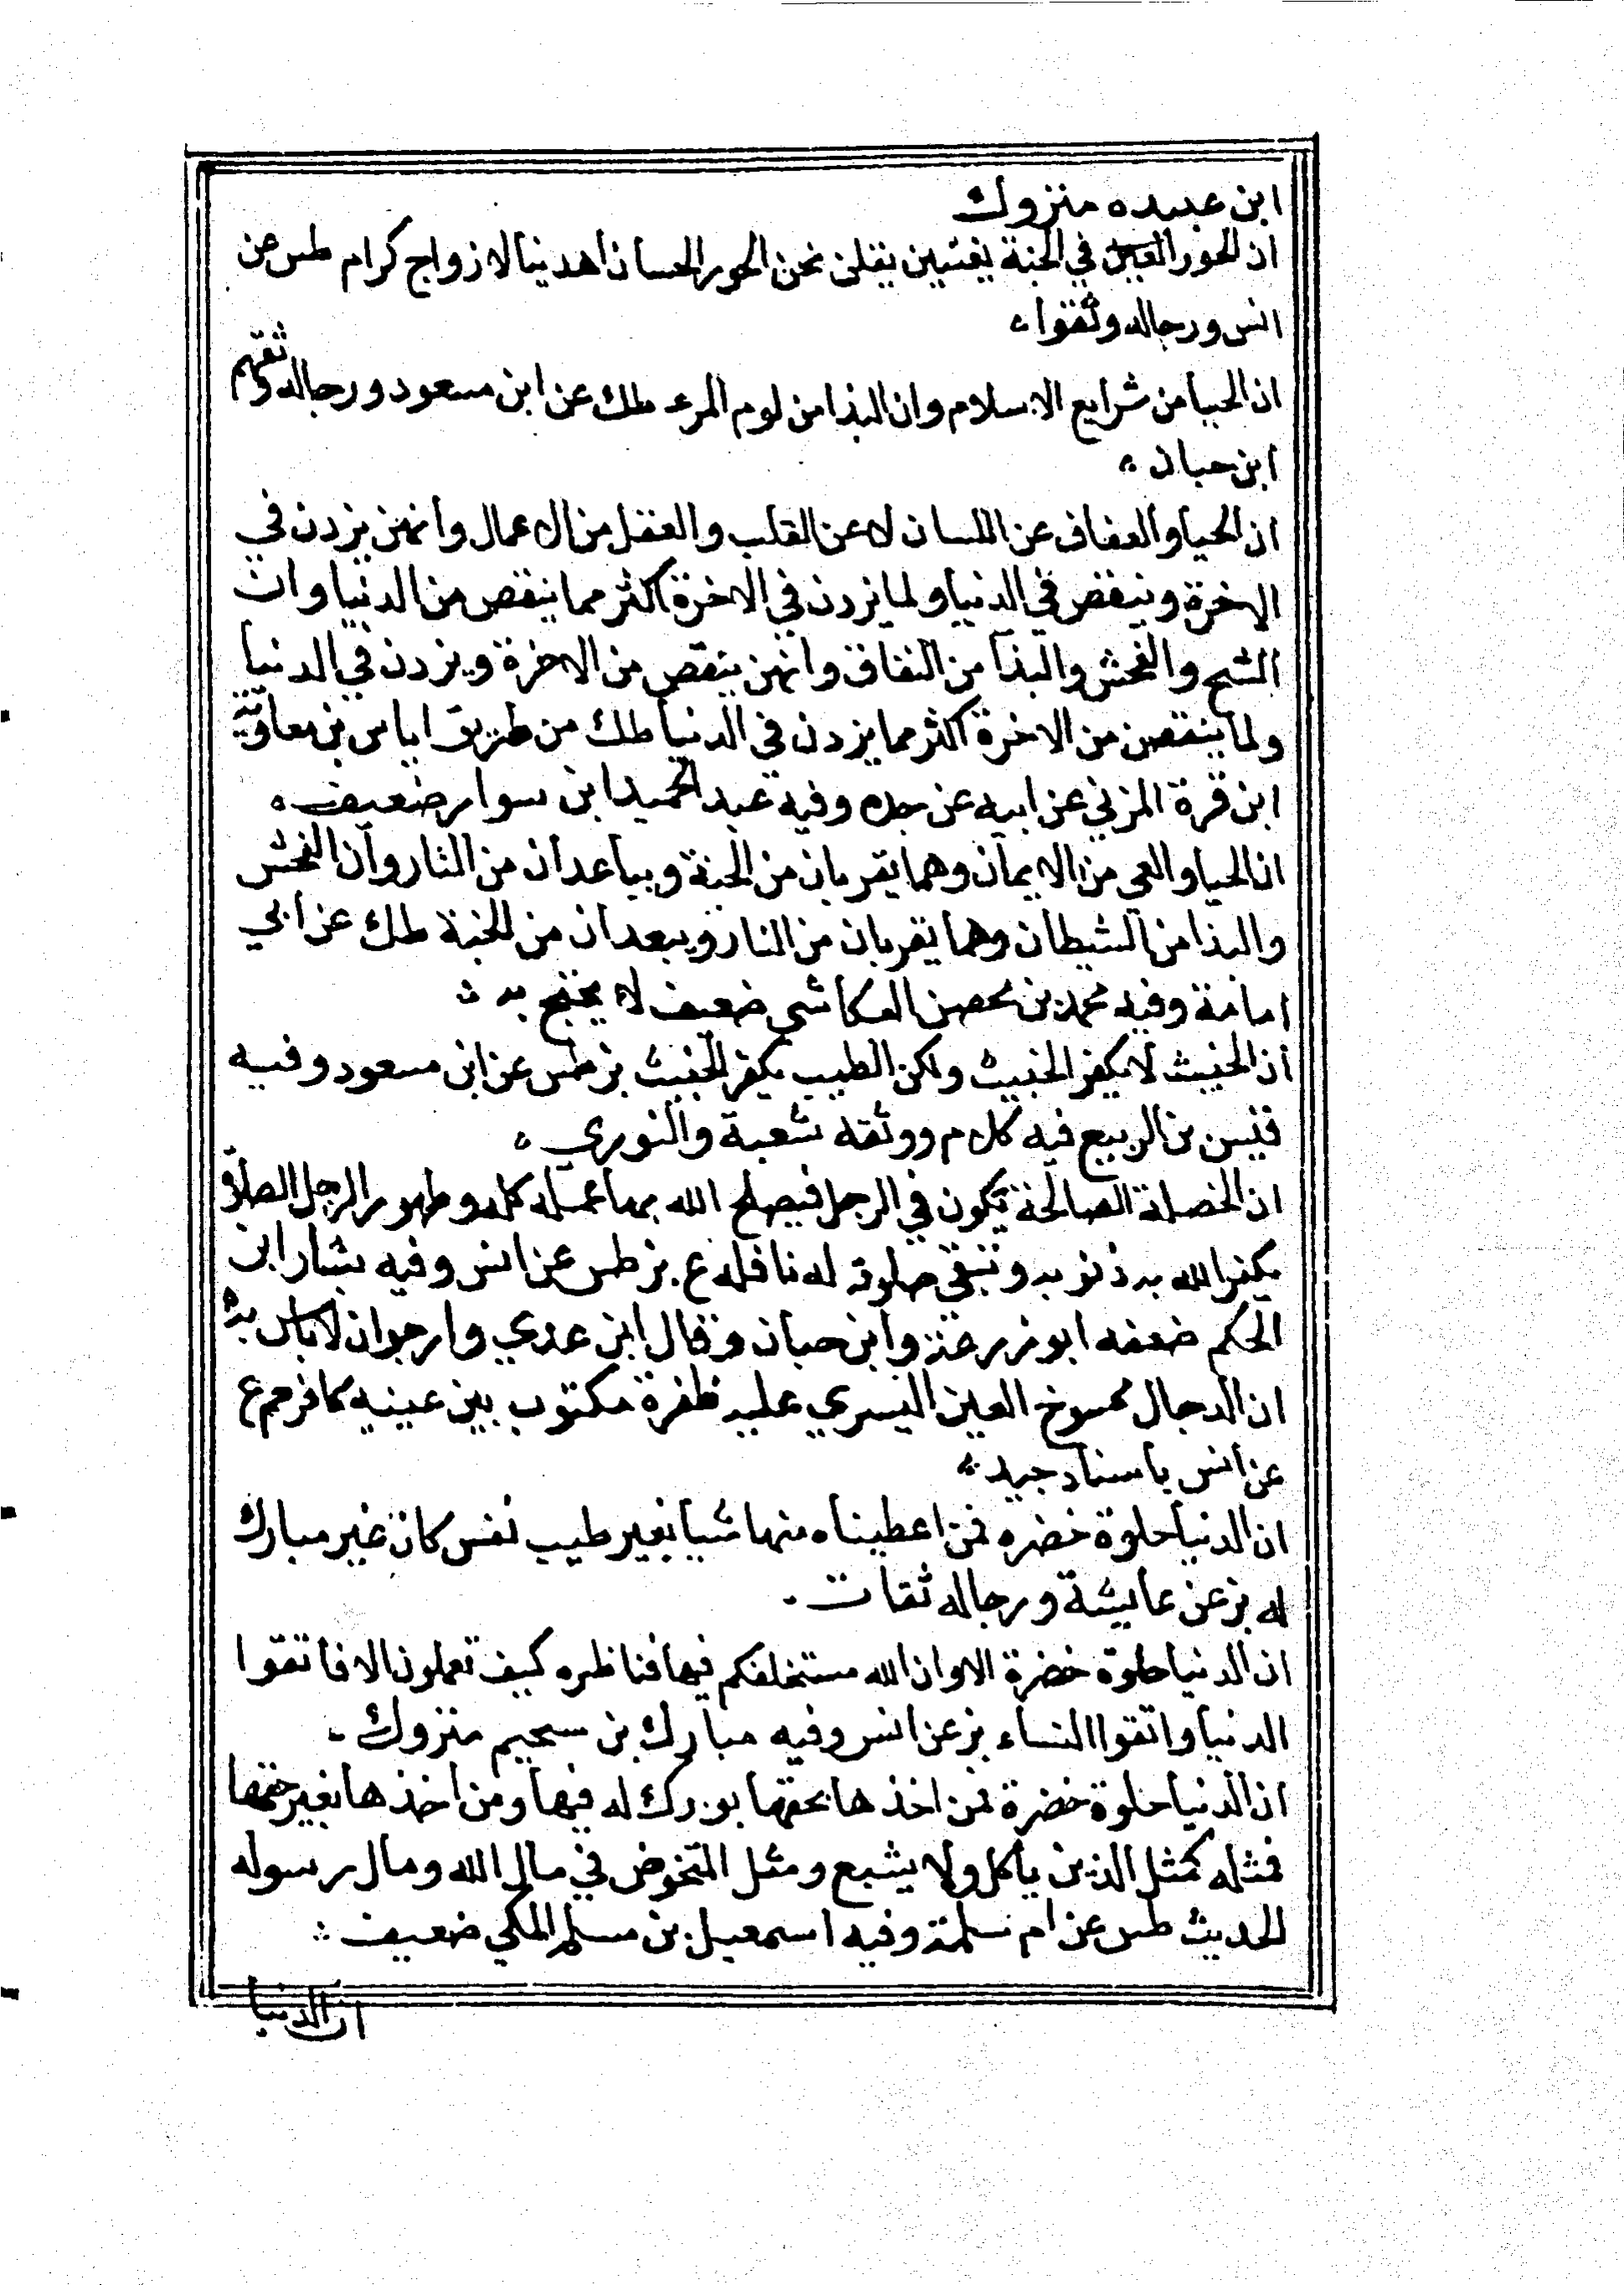 ابن عبيده متروك
ان الحور العين في الجنة يغنين يقلن نحن الحور الحسان اهدينا لازواج كرام طس عن
انس ورجاله وثقوا ه
ان الحيا من شرايع الاسلام وان البذا من لوم المرء طك عن ابن مسعود ورجاله وثقهم
ابن حبان ه
ان الحيا والعفاف عن اللسان لا عن القلب والعمل من الاعمال وانهن يزدن في
الاخرة وينقص في الدنيا ولما يزدن في الاخرة اكثر مما ينقص من الدنيا وان
الشح والفحش والبذا من النفاق وانهن ينقص من الاخرة ويزدن في الدنيا
ولما ينقصن من الاخرة اكثر مما يزدن في الدنيا طك من طريق اياس بن معاوية
ابن قرة المزني عن ابيه عن جده وفيه عبد الحميد ابن سوار ضعيف ه
ان الحيا والعي من الايمان وهما يقربان من الجنة ويباعدان من النار وان الفحش
والبذا من الشيطان وهما يقربان من النار ويبعدان من الجنة طك عن ابي
امامة وفيه محمد بن محصن العكاشي ضعيف لا يحتج به
ان الخبيث لا يكفر الخبيث ولكن الطيب يكفر الخبيث بز طس عن ابن مسعود وفيه
قيس بن الربيع فيه كلام ووثقه شعبة والثوري ه
ان الخصلة الصالحة تكون في الرجل فيصلح الله بها عمله كله وطهور الرجل الصلاة
يكفر الله به ذنوبه وتبقى صلوته له نافله ع بز طس عن انس وفيه بشار ابن
الحكم ضعفه ابو زرعة وابن حبان وقال ابن عدي وارجو ان لا باس به ه
ان الدجال ممسوخ العين اليسري عليه ظفرة مكتوب بين عينيه كافر حم ع
عن انس باسناد جيد
ان الدنيا حلوة خضره فمن اعطيناه منها شيا بغير طيب نفس كان غير مبارك
له بز عن عايشة ورجاله ثقات
ان الدنيا حلوة خضرة الا وان الله مستخلفكم فيها فناظره كيف تعملون الا فاتقوا
الدنيا واتقوا النساء بز عن انس وفيه مبارك بن سحيم متروك
ان الدنيا حلوة خضرة فمن اخذها بحقها بورك له فيها ومن اخذها بغير حقها
فمثله كمثل الذين ياكل ولا يشبع ومثل المتخوض في مال الله ومال رسوله
الحديث طس عن ام سلمة وفيه اسمعيل بن مسلم المكي ضعيف
ان الدنيا